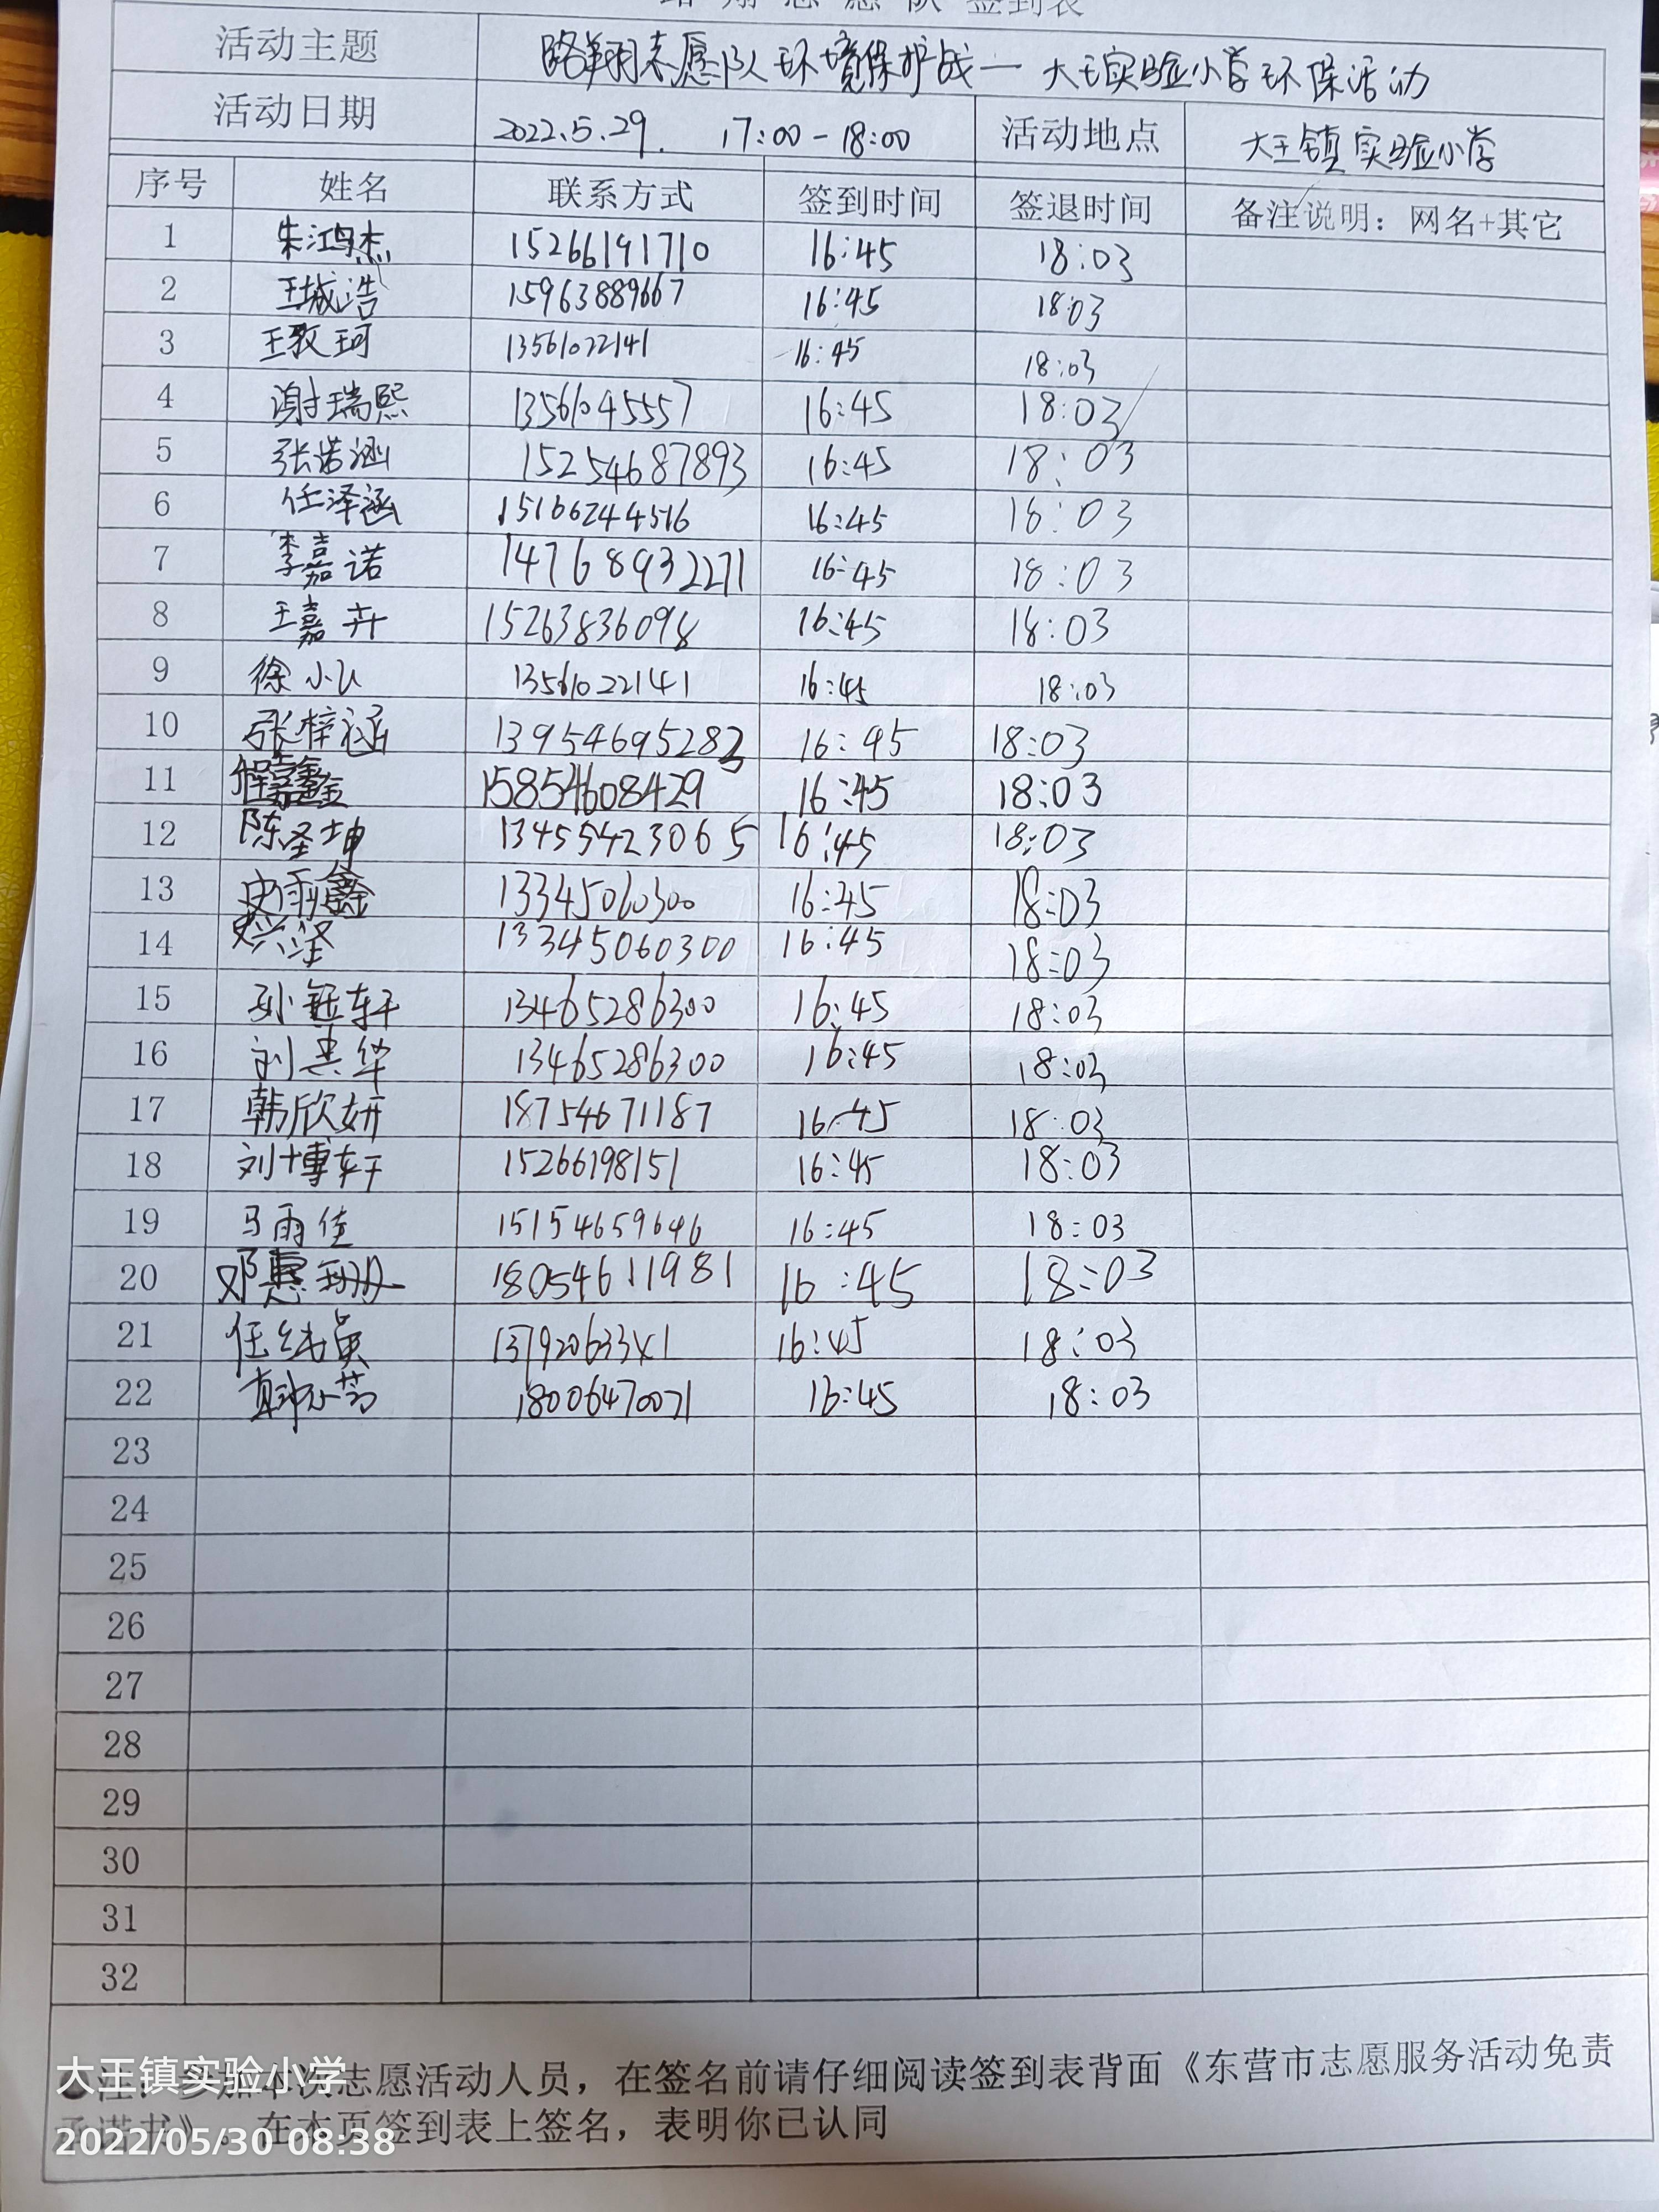 签到表
活动主题 路翔志愿队环境保护战一大王实验小学环保活动
活动日期 2022.5.29. 17:00-18:00 活动地点 大王镇实验小学
序号 姓名 联系方式 签到时间 签退时间 备注说明：网名+其它
1 朱鸿杰 15266191710 16:45 18:03
2 王城浩 15963889667 16:45 18:03
3 王敦珂 13561022141 16:45 18:03
4 谢瑞熙 13561045557 16:45 18:03
5 张诺涵 15254687893 16:45 18:03
6 任泽涵 15166244516 16:45 18:03
7 李嘉诺 14768932271 16:45 18:03
8 王嘉卉 15263836098 16:45 18:03
9 徐小 13561022141 16:45 18:03
10 张梓涵 13954695283 16:45 18:03
11 程嘉鑫 15854608429 16:45 18:03
12 陈圣坤 13455423065 16:45 18:03
13 史雨鑫 13345060300 16:45 18:03
14 史兴泽 13345060300 16:45 18:03
15 孙钰轩 13465286300 16:45 18:03
16 刘贵华 13465286300 16:45 18:03
17 韩欣妍 18754671187 16:45 18:03
18 刘博轩 15266198151 16:45 18:03
19 马雨佳 15154659646 16:45 18:03
20 邓惠珊 18054611981 16:45 18:03
21 任 16:45 18:03
22 18006470071 16:45 18:03
23
24
25
26
27
28
29
30
31
32
参加本次志愿活动人员，在签名前请仔细阅读签到表背面《东营市志愿服务活动免责
承诺书》。在本页签到表上签名，表明你已认同
大王镇实验小学
2022/05/30 08:38